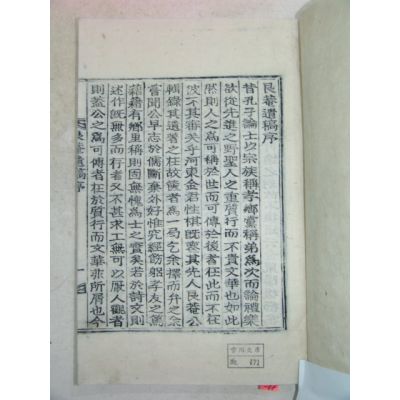 艮菴遺稿序
昔孔子論士以宗族稱孝鄕黨稱弟爲次而論禮樂
欲從先進之野聖人之重質行而不貴文華也如此
然則人之爲可稱於世而可傳於後者在此而不在
彼不其審矣乎河東金君性棋旣喪其先人艮菴公
輯錄其遺著之在故篋者爲一局乞余擇而弁之余
嘗聞公早志於儒斷棄外好惟究經飭躬孝友之篤
藉藉有鄕里稱則固無愧爲士之實矣若於詩文則
述作旣無多而行者又不甚求工無可以厭人觀者
則蓋公之爲可傳者在於質行而文華非所屑也今
艮菴遺稿序
一